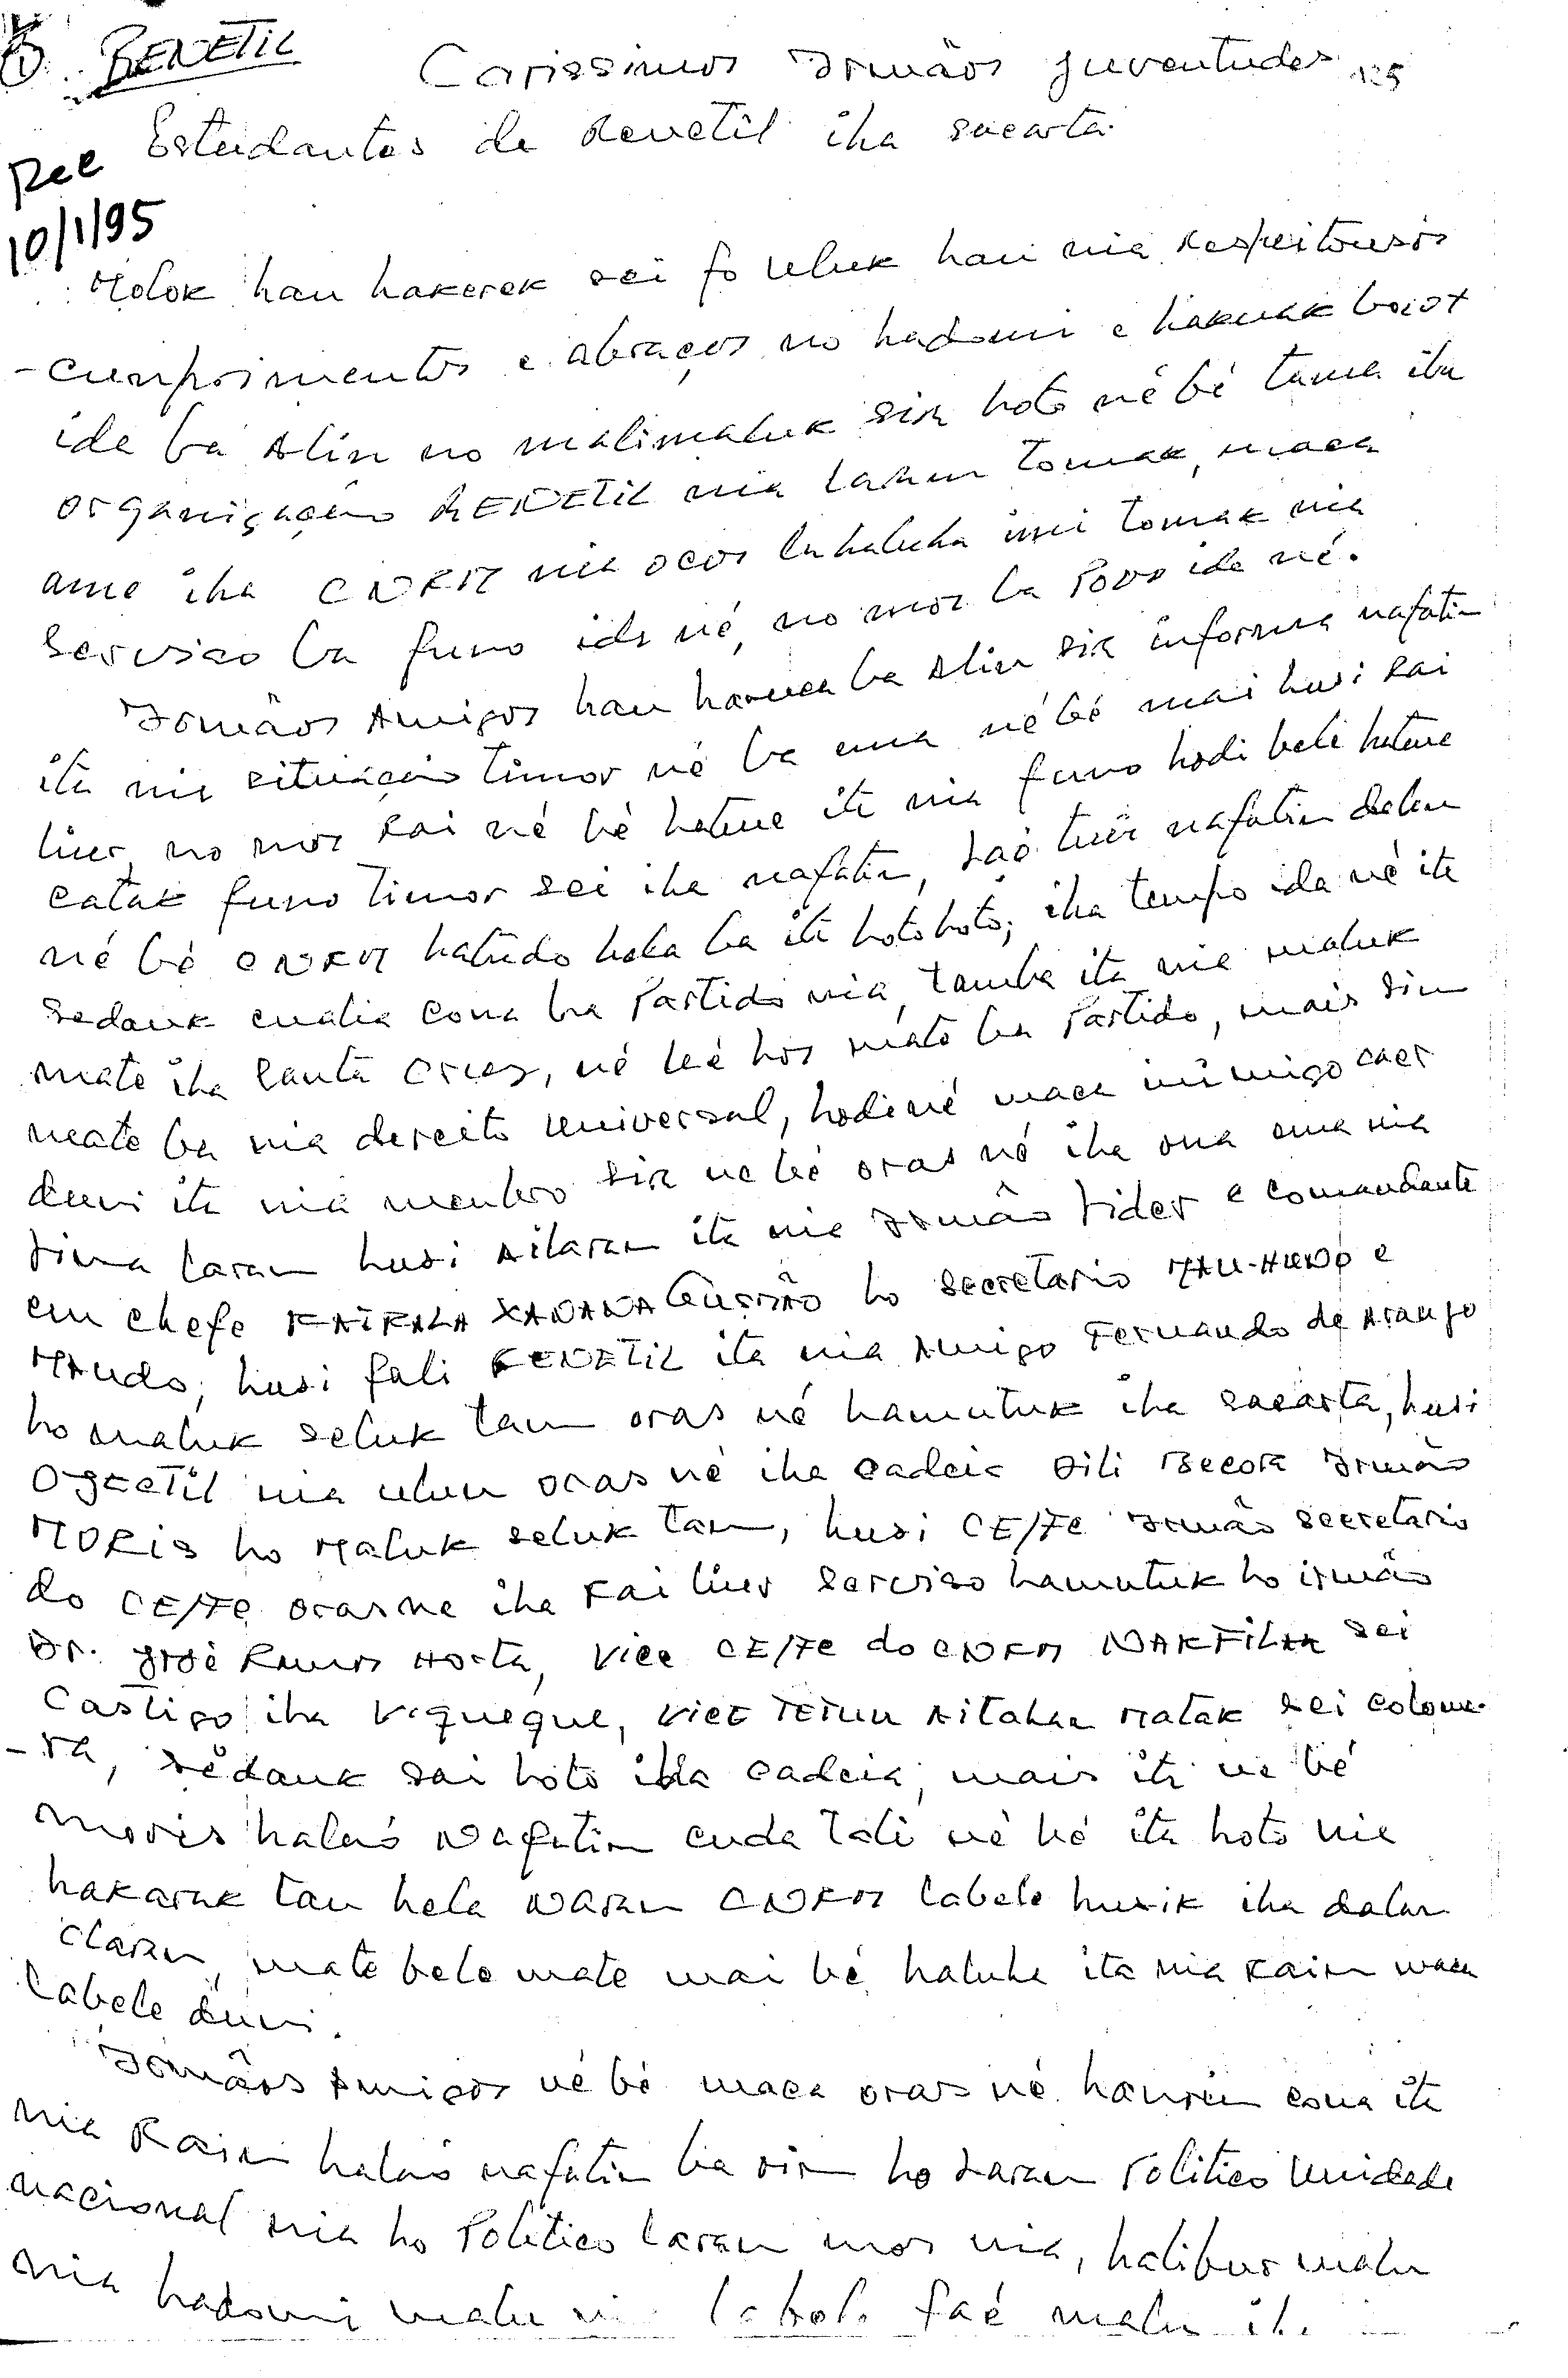 ① RENETIL
Carissimos Irmãos juventudes 125
Estudantes de Renetil iha Jacarta.
Rec
10/1/95
Molok hau hakerek sei fo uluk hau nia respeitousos
-cumprimentos e abraços no hadomi e hakuak boot
ida ba Alin no malimaluk sira hoto né bé tama iha
organização RENETIL nia laran tomak, maca
ame iha CNRM nia ocos lahaluha imi tomak nia
serviso ba funo ida né, no mos ba Povo ida né.
Irmãos Amigos hau haruca ba Alin sira informa nafatin
ita nia situação timor né ba ema né bé mai husi Rai
liur, no mos Rai né bé hatene ita nia funo hodi bele hatene
catak funo Timor sei iha nafatin, Laó tuir nafatin dalan
né bé CNRM hatudo hela ba ita hotohoto; iha tempo ida né ita
sedauk cualia cona ba Partido nia, tamba ita nia maluk
mate iha Santa Cruz, né bé hos mate ba Partido, mais sin
mate ba nia dereito universal, hodi né maca inimigo caer
duni ita nia membro sira ne bé oras né iha ona ema nia
Lima laran husi Ailaran ita nia Irmão Lider e comandante
em chefe KAIRALA XANANA Gusmão ho secretario MAU-HUNO e
MAudo, husi fali RENETIL ita nia Amigo Fernando de Araujo
ho maluk seluk tan oras né hamutuk iha Jacarta, husi
OJECTIL nia ulun oras né iha cadeia Dili Becora Irmão
MORIS ho Maluk seluk tan, husi CE/FC Irmão secretario
do CE/FC oras ne iha Rai liur serviso hamutuk ho irmão
Dr. José Ramos Horta, Vice CE/FC do CNRM NAKFILAK sei
Castigo iha Viqueque, vice TETUM AiTahan Matak sei colome-
-ra, sédauk sai hoto iha cadeia, mais ita ne bé
moris halaó Nafatin cuda Tali né bé ita hoto nia
hakarak tau hela Naran CNRM labele husik iha dalan
claran, mate bele mate mai bé haluha ita nia Rain maca
labele duni.
Irmãos Amigos né bé maca oras né hanoin cona ita
nia Rain halaó nafatin ba oin ho Laran Politico Unidade
nacional nia ho Politico laran mos nia, halibur malu
nia hadomi malu labele faé malu